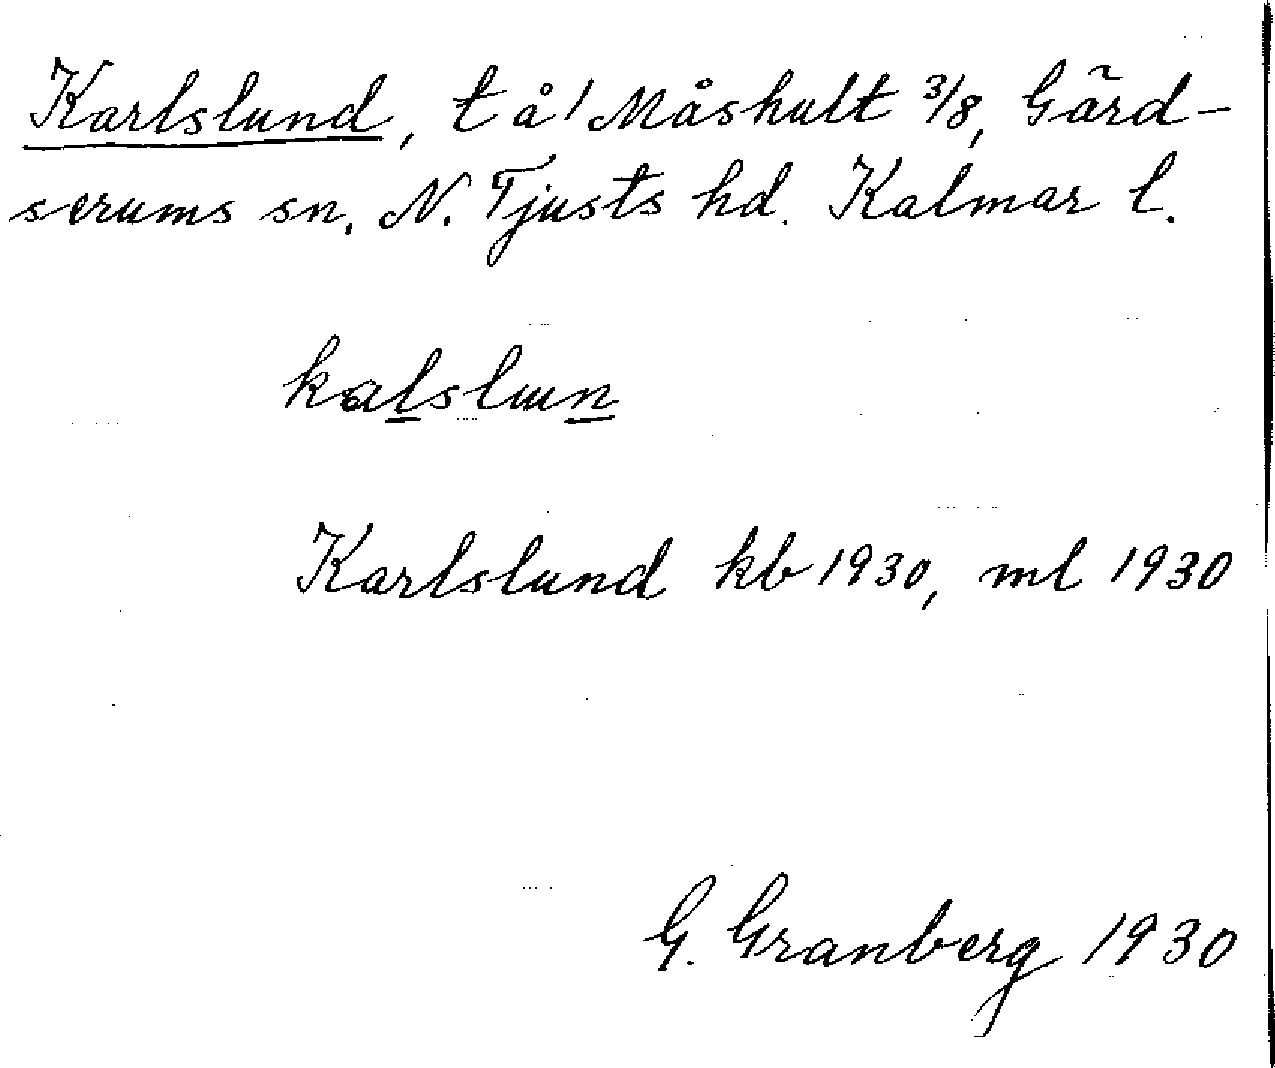 Karlslund, t å 1 Måshult 3/8, Gärd-
serums sn, N. Tjusts hd. Kalmar l.
kalslun
Karlslund kb 1930, ml 1930
G. Granberg 1930